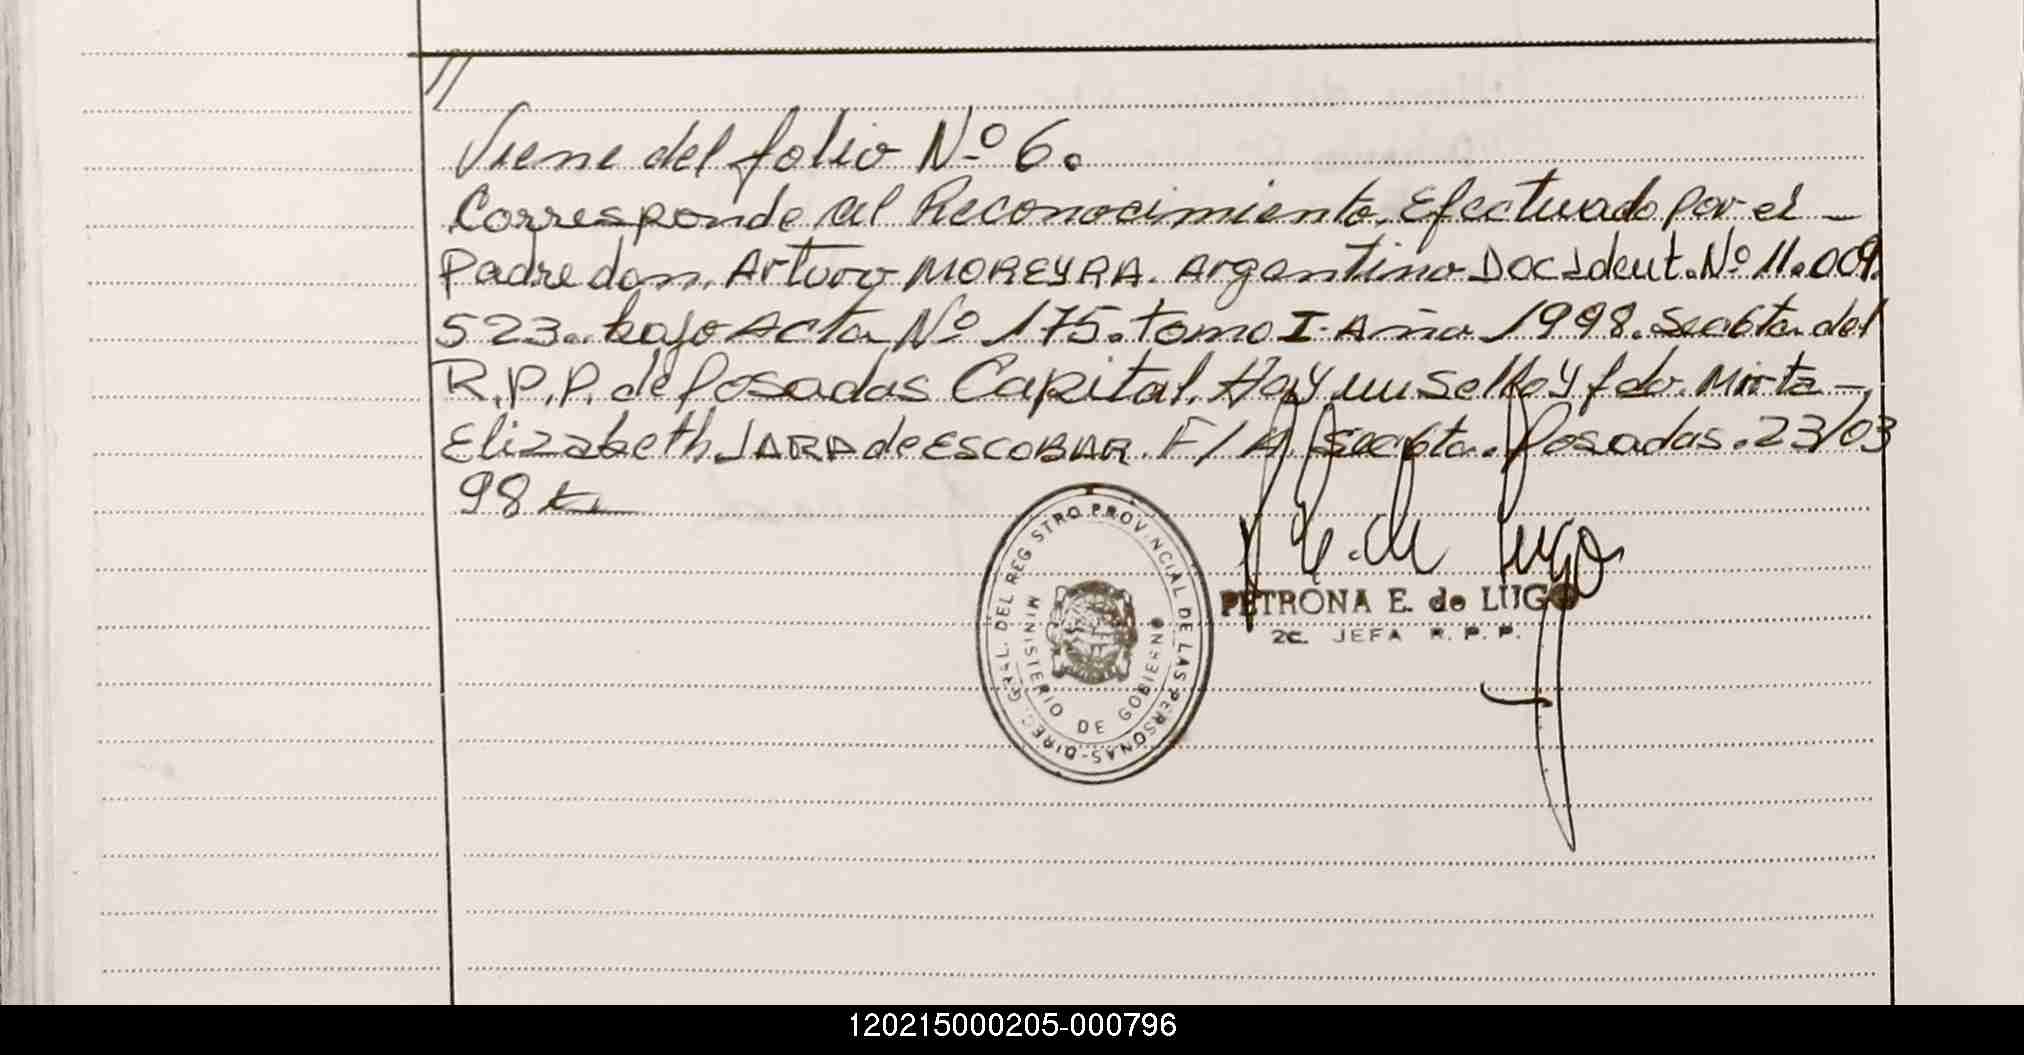 //
Viene del folio Nº 6.
Corresponde al Reconocimiento. Efectuado por el -
Padre don. Arturo MOREYRA. Argentino Doc Ident. Nº 11.009.
523. bajo Acta Nº 175. tomo I. Año 1998. Secc 6ta. del
R.P.P. de Posadas Capital. Hay un Sello y fdo. Mirta -
Elizabeth JARA de ESCOBAR. F/A. Secc 6ta. Posadas. 23/03
98
P. E. de Lugo
PETRONA E. de LUGO
2C. JEFA R. P. P.
DIREC. GRAL. DEL REGISTRO PROVINCIAL DE LAS PERSONAS-
MINISTERIO DE GOBIERNO
120215000205-000796